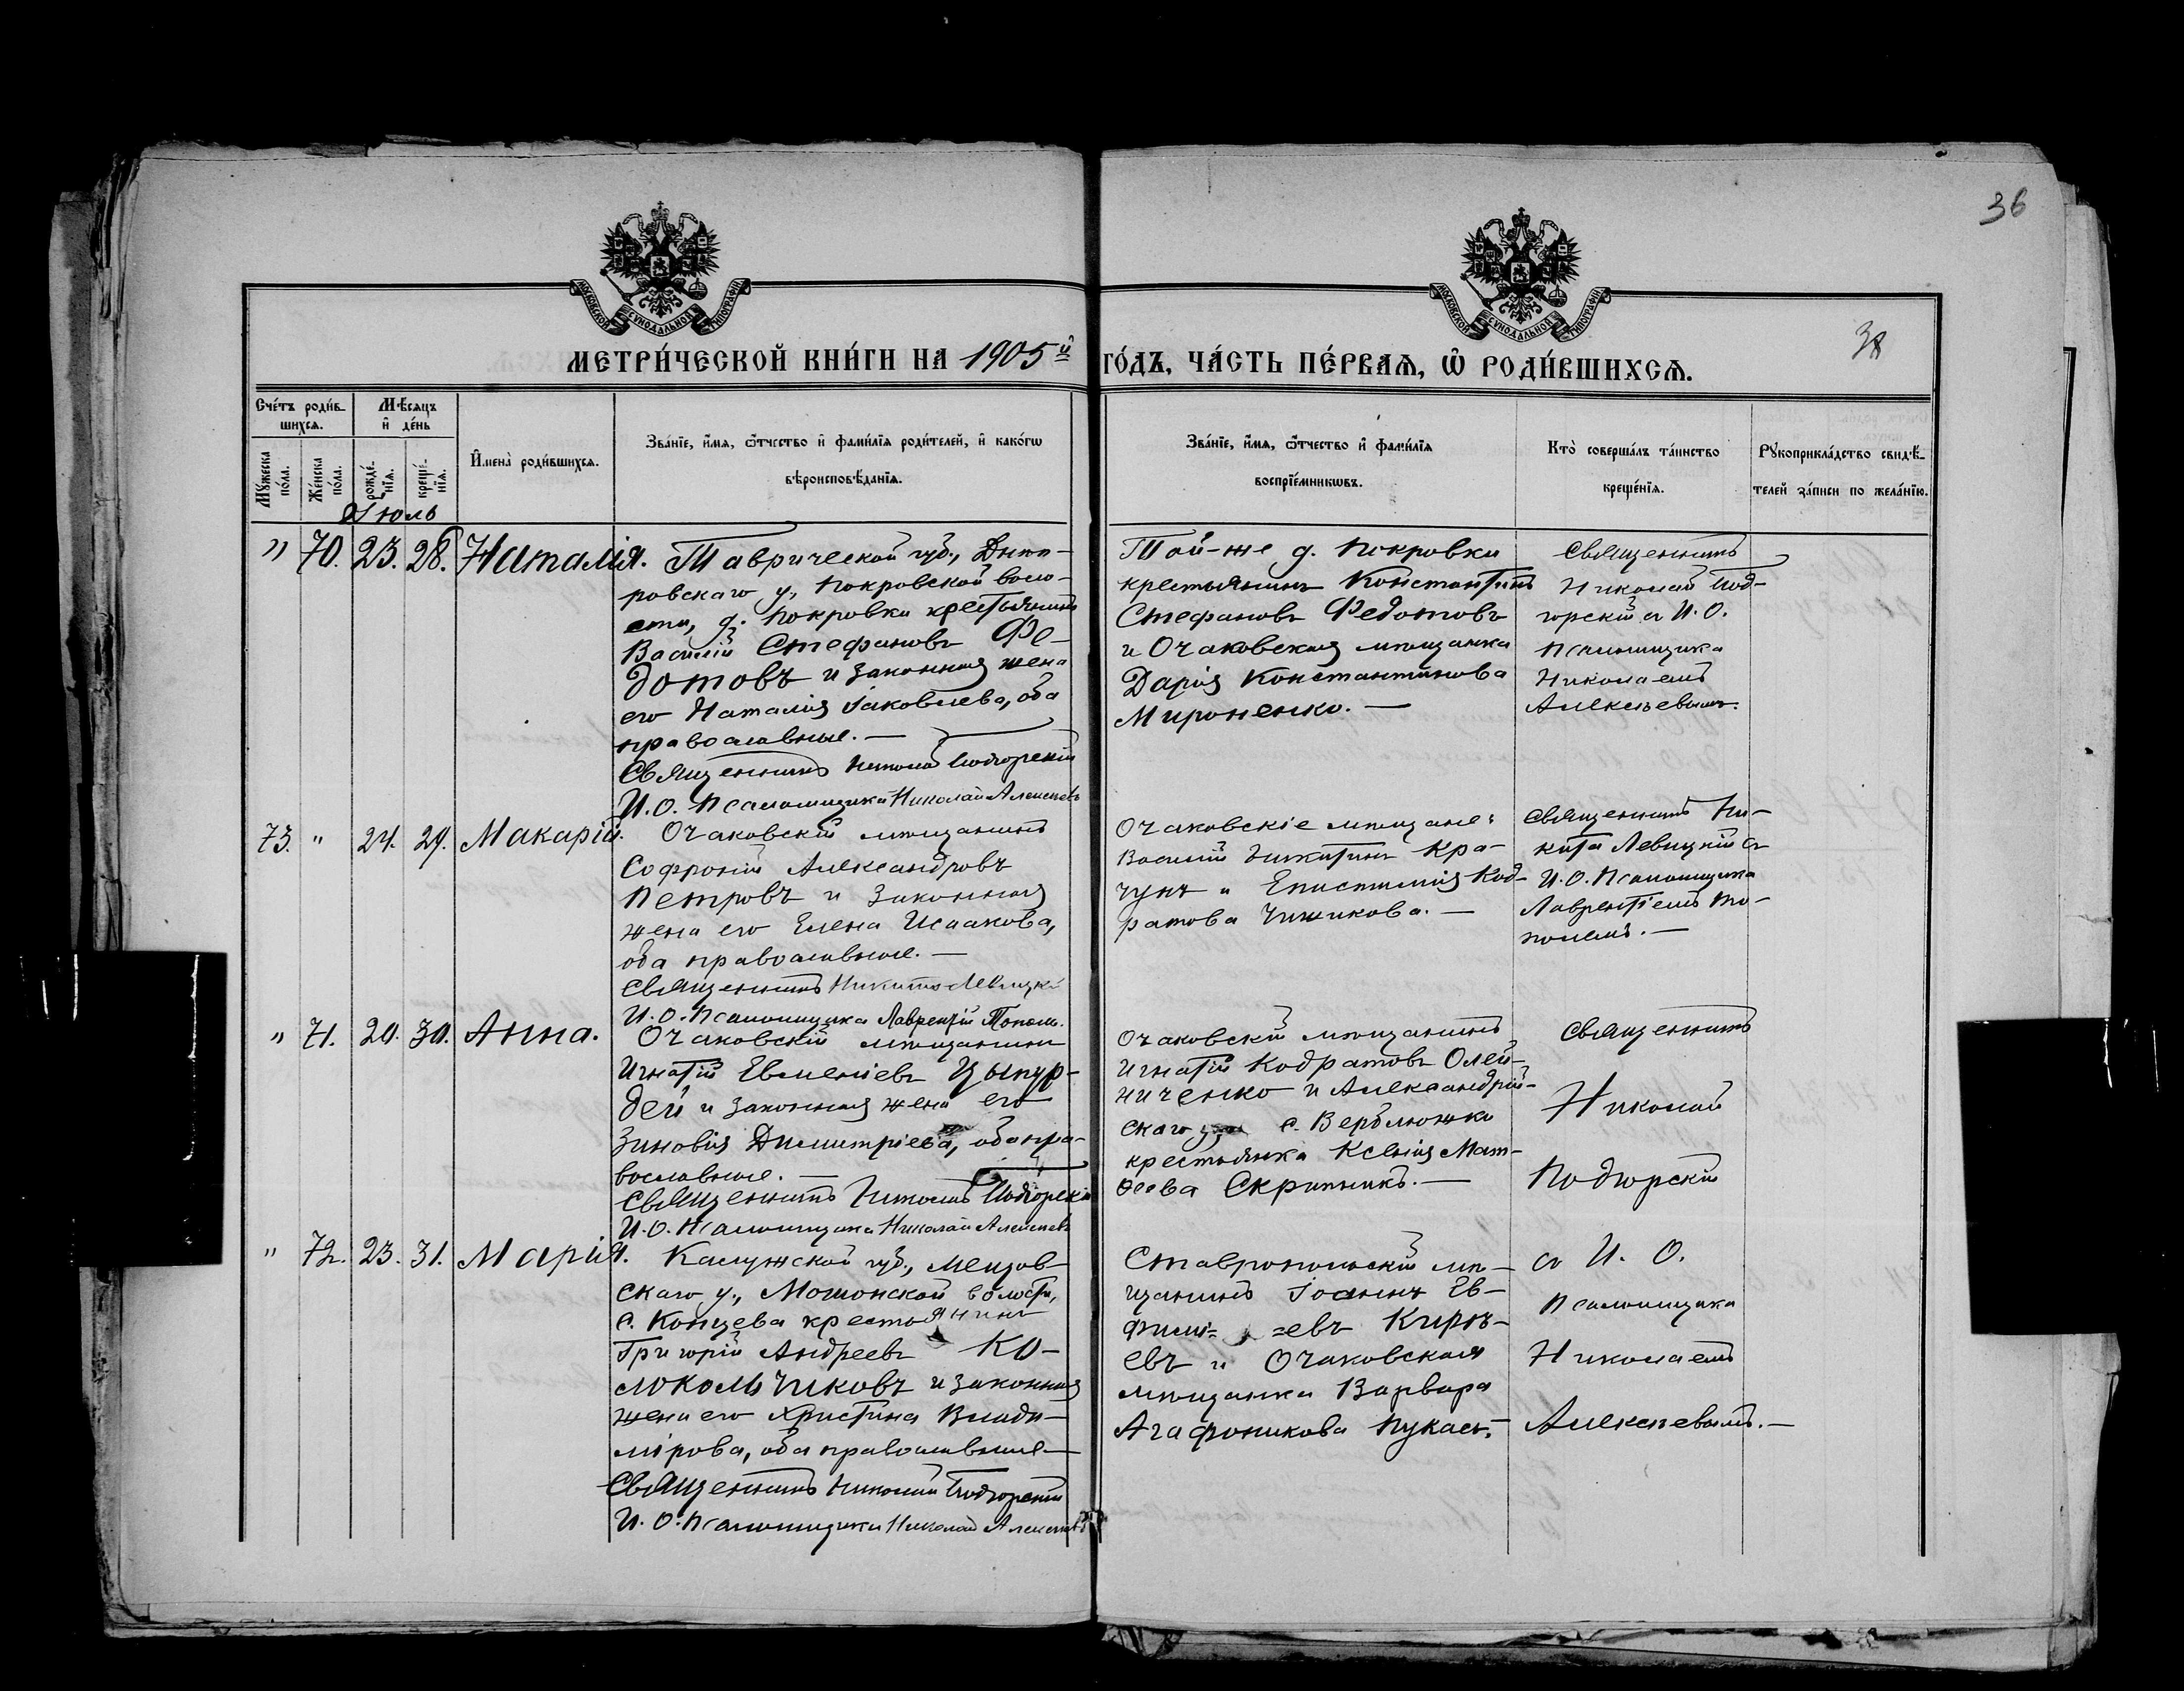 36
38
МОСКОВСКОЙ СѴНОДАЛЬНОЙ ТИПОГРАФІИ
МОСКОВСКОЙ СѴНОДАЛЬНОЙ ТИПОГРАФІИ
МЕТРИ́ЧЕСКОЙ КНИ́ГИ НА 1905й ГО́ДЪ, ЧА́СТЬ ПЕ́РВАѦ, Ѡ҆ РОДИ́ВШИХСѦ.
Сче́тъ роди́в-
шихсѧ.
Мꙋ́жеска
по́ла.
Же́нска
по́ла.
Мѣ́сѧцъ
и҆ де́нь
рожде́-
нїѧ.
креще́-
нїѧ.
И҆мена̀ роди́вшихсѧ.
Зва́нїе, и҆́мѧ, ѻ҆́тчество и҆ фами́лїѧ роди́телей, и҆ како́гѡ
вѣроисповѣ́данїѧ.
Зва́нїе, и҆́мѧ, ѻ҆́тчество и҆ фами́лїѧ
воспрїе́мникѡвъ.
Кто̀ соверша́лъ та́инство
креще́нїѧ.
Рꙋкоприкла́дство свидѣ́-
телей за́писи по жела́нїю.
Іюль
" 70. 23. 28. Наталія.
Таврической губ., Днѣп-
ровскаго у., Покровской воло-
сти, д. Покровки крестьянинъ
Василій Стефановъ Фе-
дотовъ и законная жена
его Наталія Іаковлева, оба
православные. —
Священникъ Николай Подгорскій
И. О. Псаломщика Николай Алексѣевъ
Той-же д. Покровки
крестьянинъ Константинъ
Стефановъ Федотовъ
и Очаковская мѣщанка
Дарія Константинова
Мироненко. —
Священникъ
Николай Под-
горскій съ И. О.
Псаломщика
Николаемъ
Алексѣевымъ.
73. " 24. 29. Макарій.
Очаковскій мѣщанинъ
Софроній Александровъ
Петровъ и законная
жена его Елена Исаакова,
оба православные. —
Священникъ Никита Левицкій
И. О. Псаломщика Лаврентій Тополь.
Очаковскіе мѣщане:
Василій Никитинъ Кра-
чунъ и Епистимія Код-
ратова Чижикова. —
Священникъ Ни-
кита Левицкій съ
И. О. Псаломщика
Лаврентіемъ То-
полемъ. —
" 71. 20. 30. Анна.
Очаковскій мѣщанинъ
Игнатій Евменіевъ Цыпур-
дей и законная жена его
Зиновія Димитріева, оба пра-
вославные. —
Священникъ Николай Подгорскій
И. О. Псаломщика Николай Алексѣевъ
Очаковскій мѣщанинъ
Игнатій Кодратовъ Олей-
ниченко и Александрій-
скаго у., с. Верблюжки
крестьянка Ксенія Мат-
ѳеева Скрипникъ. —
Священникъ
Николай
Подгорскій
" 72. 23. 31. Марія.
Калужской губ., Мещов-
скаго у., Мошонской волости,
с. Концева крестьянинъ
Григорій Андреевъ Ко-
локольчиковъ и законная
жена его Христина Влади-
мірова, оба православные —
Священникъ Николай Подгорскій
И. О. Псаломщика Николай Алексѣевъ
Ставропольскій мѣ-
щанинъ Іоаннъ Ев-
фимі= =евъ Кирѣ-
евъ и Очаковская
мѣщанка Варвара
Агафоникова Пукасъ.
съ И. О.
Псаломщика
Николаемъ
Алексѣевымъ. —